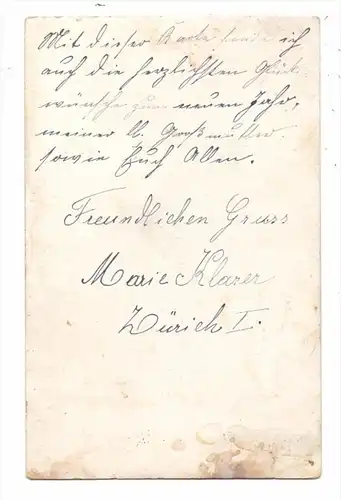 Mit dieser Karte sende ich
auch die herzlichsten Glück-
wünsche zum neuen Jahr,
meiner lb. Großmutter
sowie Euch Allen.
Freundlichen Gruss
Marie Klarer
Zürich I.